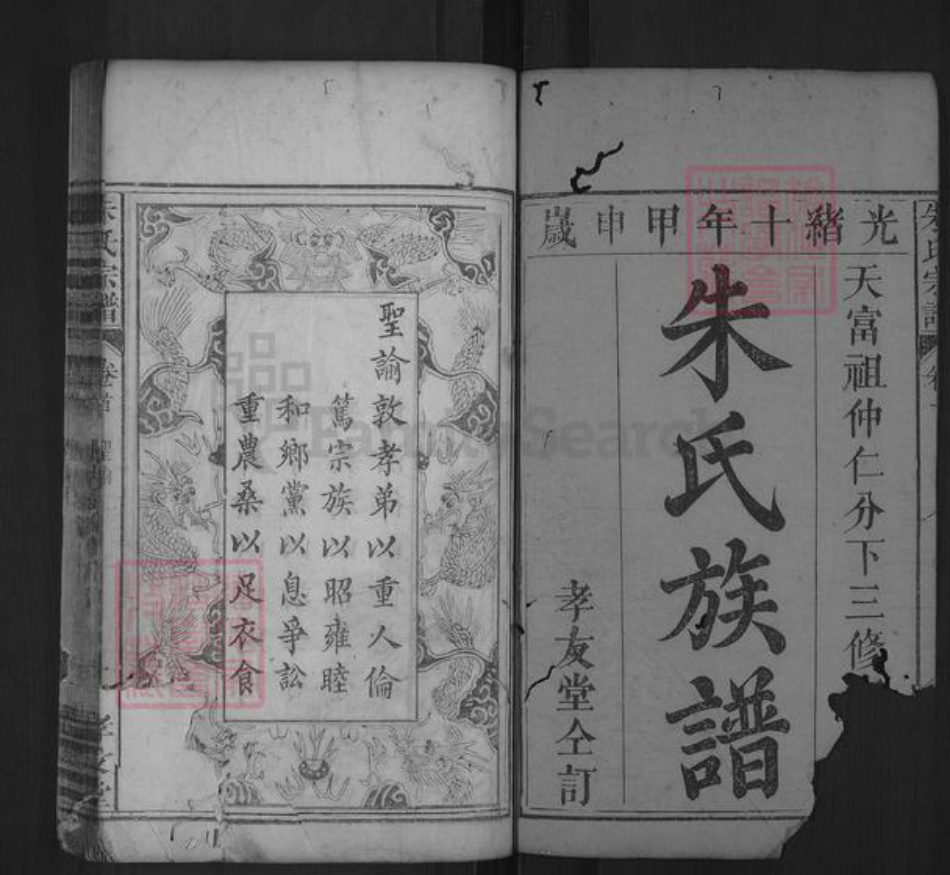 光緒十年甲申歲
天富祖仲仁分下三修
朱氏族譜
孝友堂仝訂
聖諭敦孝弟以重人倫
篤宗族以昭雍睦
和鄉黨以息爭訟
重農桑以足衣食
朱氏宗譜
卷首
聖諭
孝友堂
朱氏宗譜
FamilySearch